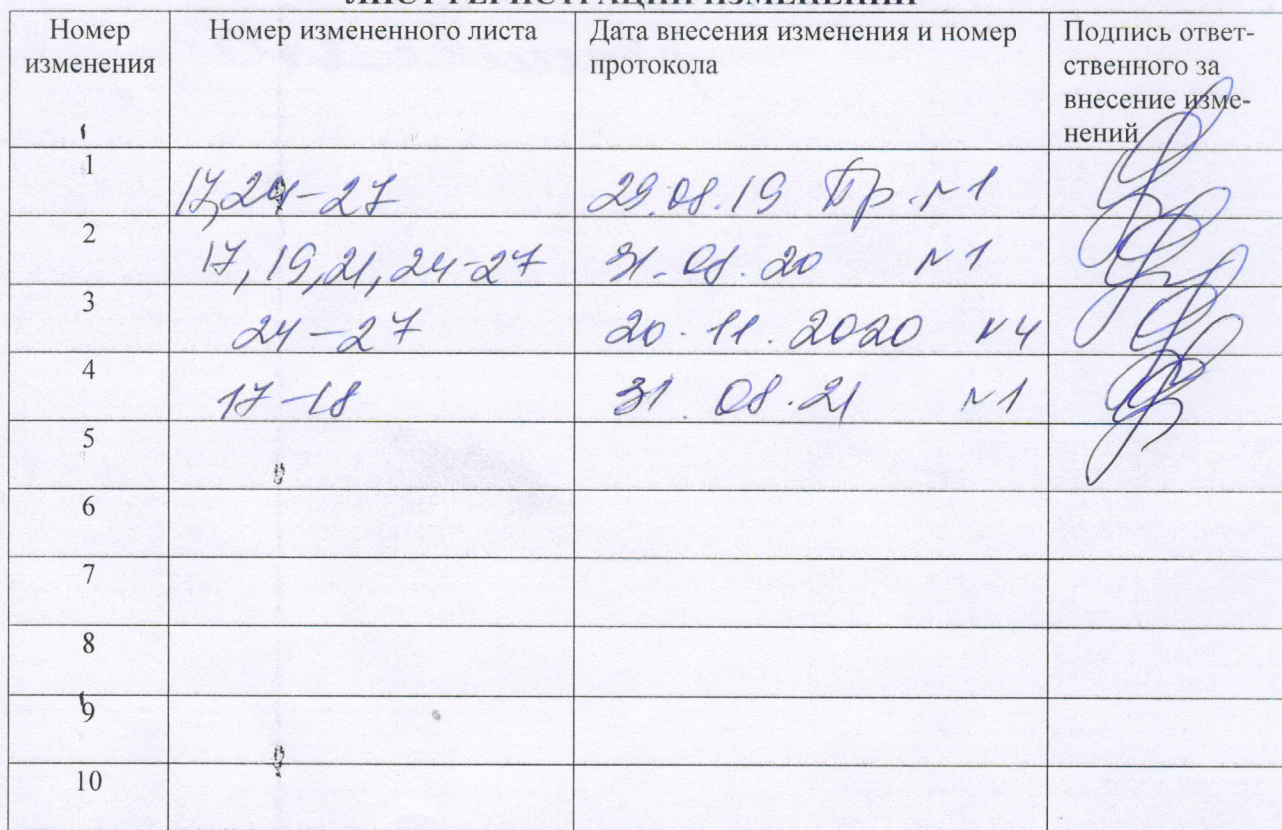 ЛИСТ РЕГИСТРАЦИИ ИЗМЕНЕНИЙ
Номер изменения
Номер измененного листа
Дата внесения изменения и номер протокола
Подпись ответ-
ственного за
внесение изме-
нений
1
17,24-27
29.08.19 Пр.№1
2
17, 19, 21, 24-27
31.08.20 №1
3
24-27
20.11.2020 №4
4
17-18
31.08.21 №1
5
6
7
8
9
10